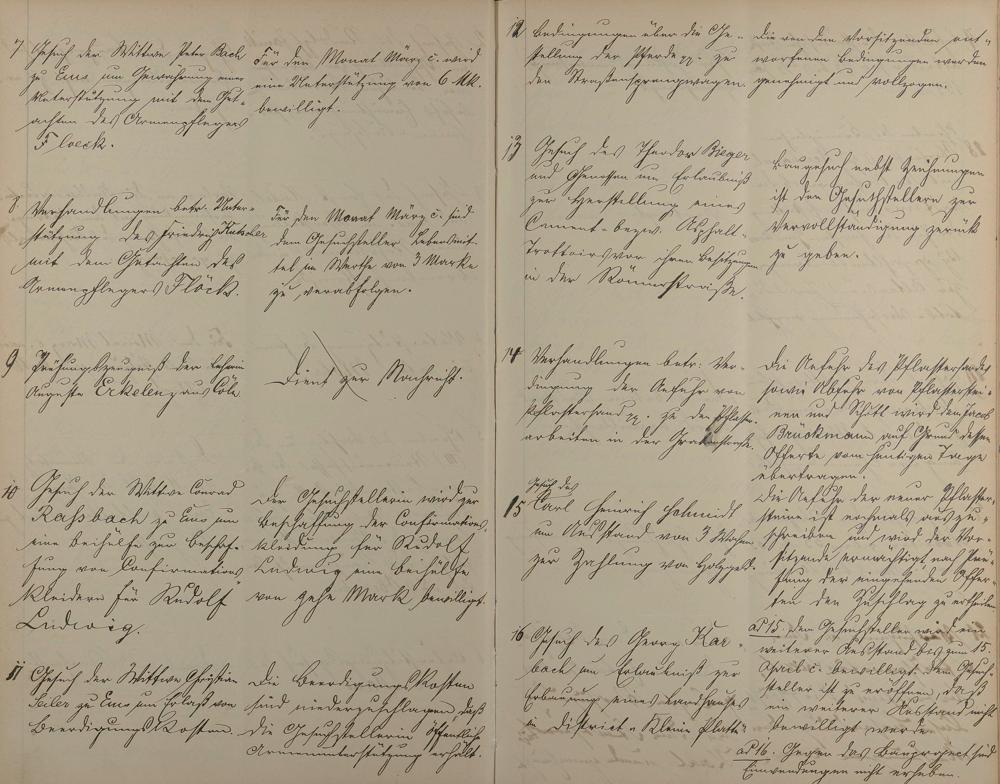 7 Gesuch der Wittwe Peter Bach
zu Ems um Gewährung einer
Unterstützung mit dem Gut-
achten des Armenpflegers
Floeck.
Für den Monat März c. wird
eine Unterstützung von 6 Mk.
bewilligt.
8 Verhandlungen betr. Unter-
stützung des Friedrich
mit dem Gutachten des
Armenpflegers Flöck.
Für den Monat März c. sind
dem Gesuchsteller Lebensmit-
tel im Werthe von 3 Marke
zu verabfolgen.
9 Prüfungszeugniß der Lehrerin
Auguste Erkelenz aus Cöln
Dient zur Nachricht.
10 Gesuch der Wittwe Conrad
Raßbach zu Ems um
eine Beihülfe zur Beschaf-
fung von Confirmations
Kleidern für Rudolf
Ludwig.
Der Gesuchstellerin wird zur
Beschaffung der Confirmations
kleidung für Rudolf
Ludwig eine Beihülfe
von zehn Mark bewilligt.
11 Gesuch der Wittwe Christian
zu Ems um Erlaß von
Beerdigungs Kosten.
Die Beerdigungs Kosten
sind niederzuschlagen, daß
die Gesuchstellerin öffentliche
Armenunterstützung erhält.
12 Bedingungen über die Ge-
stellung der Pferde pp. zu
den Straßensprengwagen.
Die von dem Vorsitzenden ent-
worfenen Bedingungen werden
genehmigt und vollzogen.
13 Gesuch des Theodor Bieger
und Genossen um Erlaubniß
zur Herstellung eines
Cement- bezw. Asphalt-
Trottoirs vor ihren Besitzungen
in der Römerstraße.
Baugesuch nebst Zeichnungen
ist den Gesuchstellern zur
Vervollständigung zurück
zu geben.
14 Verhandlungen betr. Ver-
dingung der Anfuhr von
Pflastersand pp. zu den Pflaster-
arbeiten in der Grabenstraße.
Die Anfuhr des Pflastersandes
sowie Abfuhr von Pflasterstei-
nen und Schutt wird dem Jacob
Brückmann auf Grund dessen
Offerte vom heutigen Tage
übertragen.
Die Anfuhr der neuen Pflaster-
steine ist nochmals auszu-
schreiben und wird der Vor-
sitzende ermächtigt nach Prü-
fung der eingehenden Offer-
ten den Zuschlag zu ertheilen
Gesuch des
15 Karl Heinrich Schmidt
um Ausstand von 3 Wochen
zur Zahlung von Holzgeld.
16 Gesuch des Georg Kar-
bach um Erlaubniß zur
Erbauung eines Landhauses
in District "Kleine Platte"
ad 15. dem Gesuchsteller wird ein
weiterer Ausstand bis zum 15.
April c. bewilligt. Dem Gesuch-
steller ist zu eröffnen, daß
ein weiterer Ausstand nicht
bewilligt werde.
ad 16. Gegen das Bauproject sind
Einwendungen nicht erhoben